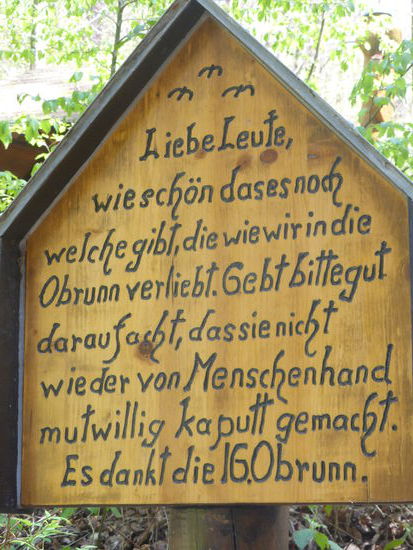 Liebe Leute,
wie schön das es noch
welche gibt, die wie wir in die
Obrunn verliebt. Gebt bitte gut
darauf acht, das sie nicht
wieder von Menschenhand
mutwillig kaputt gemacht.
Es dankt die 16. Obrunn.